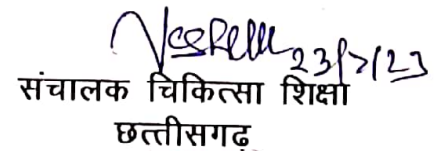 23/7/23
संचालक चिकित्सा शिक्षा
छत्तीसगढ़